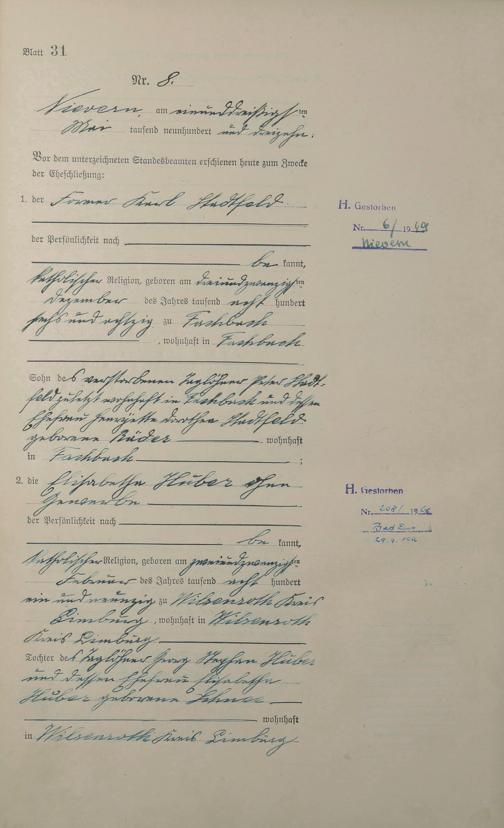 Blatt 31
Nr. 8.
Nievern, am einunddreißigsten
Mai tausend neunhundert und dreizehn.
Vor dem unterzeichneten Standesbeamten erschienen heute zum Zwecke
der Eheschließung:
1. der Former Karl Stadtfeld
H. Gestorben
Nr. 6/ 1949
Nievern
der Persönlichkeit nach
be kannt,
katholischer Religion, geboren am dreiundzwanzigsten
Dezember des Jahres tausend acht hundert
sechs und achtzig zu Fachbach
, wohnhaft in Fachbach
Sohn des verstorbenen Taglöhner Peter Stadt-
feld zuletzt wohnhaft in Fachbach und dessen
Ehefrau Henriette Dorothea Stadtfeld
geborene , wohnhaft
in Fachbach ;
2. die Elisabetha Huber ohne
Gewerbe
H. Gestorben
Nr. 208/ 19
Bad Ems
der Persönlichkeit nach
be kannt,
katholischer Religion, geboren am zweiundzwanzigsten
Februar des Jahres tausend acht hundert
ein und neunzig zu Wilsenroth Kreis
Limburg, wohnhaft in Wilsenroth
Kreis Limburg
Tochter des Taglöhner Georg Stephan Huber
und dessen Ehefrau Elisabetha
Huber geborene
wohnhaft
in Wilsenroth Kreis Limburg